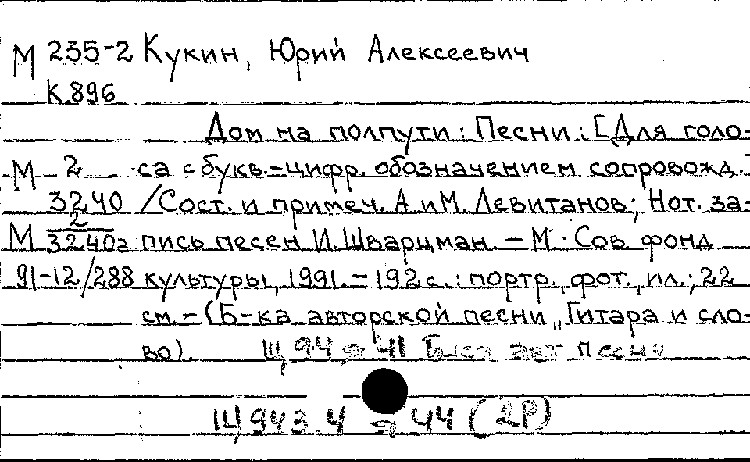 М 235-2 Кукин, Юрий Алексеевич
К 896
Дом на полпути: Песни: [Для голо-
М 2 са с букв.-цифр. обозначением сопровожд.
3240 /Сост. и примеч. А. и М. Левитанов; Нот. за-
М 2 3240а пись песен И. Шварцман. - М.: Сов. фонд
91-12/288 культуры, 1991. - 192 с.: портр., фот., ил.; 22
см. - (Б-ка авторской песни „Гитара и сло-
во).
Щ 943.4 я 44 (2Р)